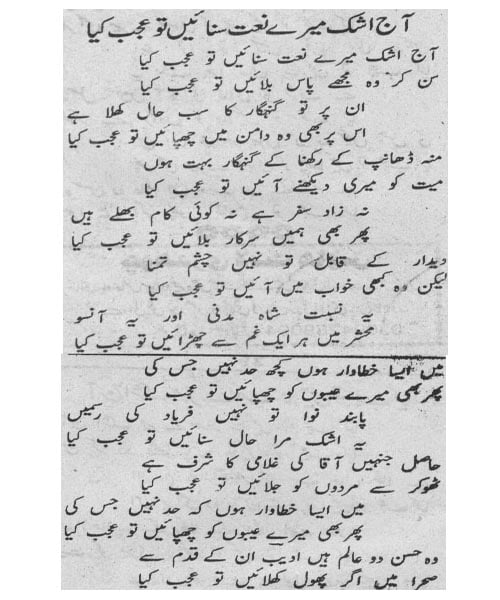 آج اشک میرے نعت سنائیں تو عجب کیا
آج اشک میرے نعت سنائیں تو عجب کیا
سن کر وہ مجھے پاس بلائیں تو عجب کیا
ان پر تو گنہگار کا سب حال کھلا ہے
اس پر بھی وہ دامن میں چھپائیں تو عجب کیا
منہ ڈھانپ کے رکھنا کے گنہگار بہت ہوں
میت کو میری دیکھنے آئیں تو عجب کیا
نہ زاد سفر ہے نہ کوئی کام بھلے ہیں
پھر بھی ہمیں سرکار بلائیں تو عجب کیا
دیدار کے قابل تو نہیں چشم تمنا
لیکن وہ کبھی خواب میں آئیں تو عجب کیا
یہ نسبت شاہ مدنی اور یہ آنسو
محشر میں ہر ایک غم سے چھڑائیں تو عجب کیا
میں ایسا خطاوار ہوں کچھ حد نہیں جس کی
پھر بھی میرے عیبوں کو چھپائیں تو عجب کیا
پابند نوا تو نہیں فریاد کی رسمیں
یہ اشک مرا حال سنائیں تو عجب کیا
حاصل جنہیں آقا کی غلامی کا شرف ہے
ٹھوکر سے مردوں کو جلائیں تو عجب کیا
میں ایسا خطاوار ہوں کہ حد نہیں جس کی
پھر بھی میرے عیبوں کو چھپائیں تو عجب کیا
وہ حسن دو عالم ہیں ادیب ان کے قدم سے
صحرا میں اگر پھول کھلائیں تو عجب کیا